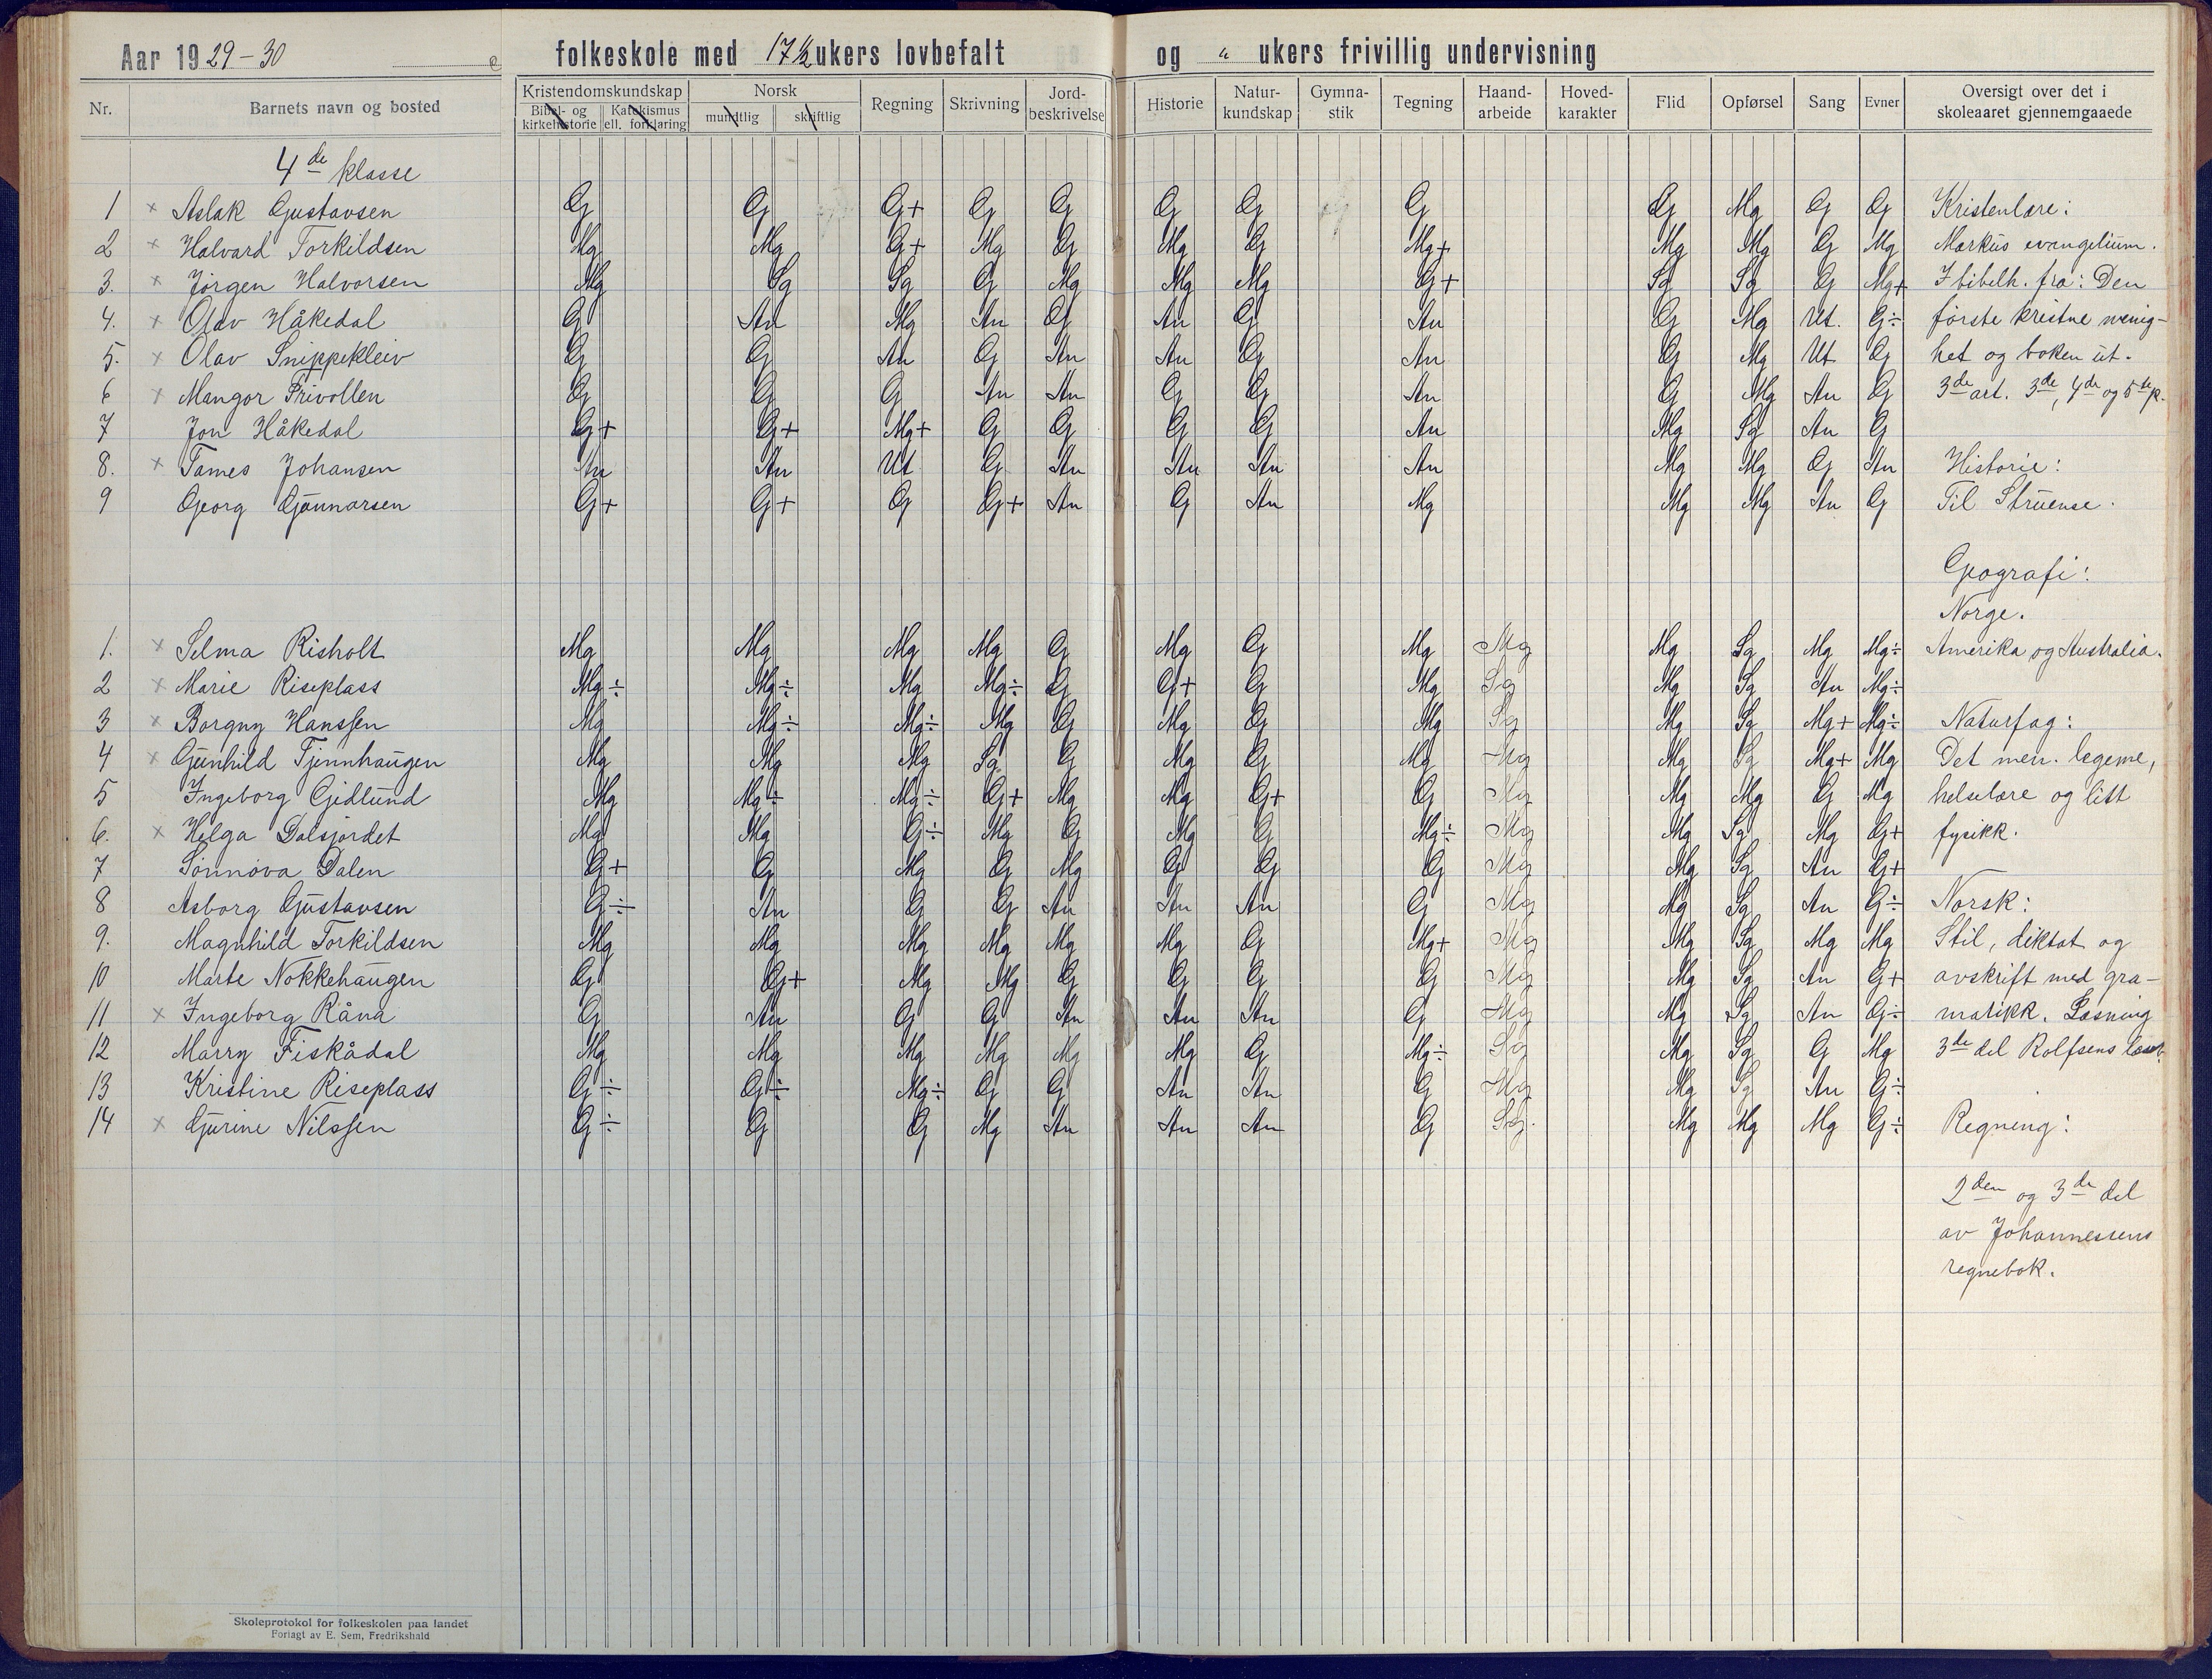 Aar 1929-30 folkeskole med 17 1/2 ukers lovbefalt og " ukers frivillig undervisning
Nr. Barnets navn og bosted Kristendomskundskap Bibel- og kirkehistorie Katekismus ell. forklaring Norsk mundtlig skriftlig Regning Skrivning Jord-beskrivelse Historie Natur-kundskap Gymna-stik Tegning Haand-arbeide Hoved-karakter Flid Opførsel Sang Evner Oversigt over det i skoleaaret gjennemgaaede
4de klasse
1 × Aslak Gustavsen G G G+ G G G G G G Mg G G Kristenlære:
2 × Halvard Torkildsen Mg Mg G+ Mg G Mg G Mg+ Mg Mg G Mg Markus evangelium.
3. × Jörgen Halvorsen Mg Sg Sg G Mg Mg Mg G+ Sg Sg G Mg+ I bibelh. fra: Den
4. × Olav Håkedal G An Mg An G An G An G Mg Ut. G÷ förste kristne menig-
5. × Olav Snippekleiv G G An G An An G An G Mg Ut G het og boken ut.
6 × Mangor Frivollen G G G An An G G An G Mg An G 3de art. 3de, 4de og 5te p.
7 Jon Håkedal G+ G+ Mg+ G G G G An Mg Sg An G
8. × James Johansen An An Ut G An An An An Mg Mg G An Historie:
9 Georg Gunnarsen G+ G+ G G+ An G An Mg Mg Mg An G Til Struense.
Geografi:
Norge.
1. × Selma Risholt Mg Mg Mg Mg G Mg G Mg Mg Mg Sg Mg Mg÷ Amerika og Australia.
2 × Marie Riseplass Mg÷ Mg÷ Mg Mg÷ G G+ G Mg Sg Mg Sg An Mg÷
3 × Borgny Hanssen Mg Mg÷ Mg÷ Mg G Mg G Mg Sg Mg Sg Mg+ Mg÷ Naturfag:
4 × Gunhild Tjennhaugen Mg Mg Mg Sg G Mg G Mg Mg Mg Sg Mg+ Mg Det men. legeme,
5 Ingeborg Gjedlund Mg Mg÷ Mg÷ G+ Mg Mg G+ G Mg Mg Mg G Mg helselære og litt
6. × Helga Dalsjordet Mg Mg G÷ Mg G Mg G Mg÷ Mg Mg Sg Mg G+ fysikk.
7 Sönnöva Dalen G+ G Mg G Mg G G G Mg Mg Sg An G+
8 Asborg Gustavsen G÷ An G G An An An G Mg Mg Sg An G÷ Norsk:
9. Magnhild Torkildsen Mg Mg Mg Mg Mg Mg G Mg+ Mg Mg Sg Mg Mg Stil, diktat og
10 Marte Nokkehaugen G G+ Mg Mg G G G G Mg Mg Sg An G+ avskrift med gra-
11 × Ingeborg Råna G An G G An An An G Mg Mg Sg An G÷ matikk. Læsning
12 Marry Fiskådal Mg Mg Mg Mg Mg Mg G Mg÷ Sg Mg Sg G Mg 3de del Rolfsens læseb.
13 Kristine Riseplass G÷ G÷ Mg÷ G G An An G Mg Mg Sg An G÷
14 × Gurine Nilssen G÷ G G Mg An An An G Sg. Mg Mg Mg G÷ Regning:
2den og 3de del
av Johannessens
regnebok.
Skoleprotokol for folkeskolen paa landet
Forlagt av E. Sem, Fredrikshald